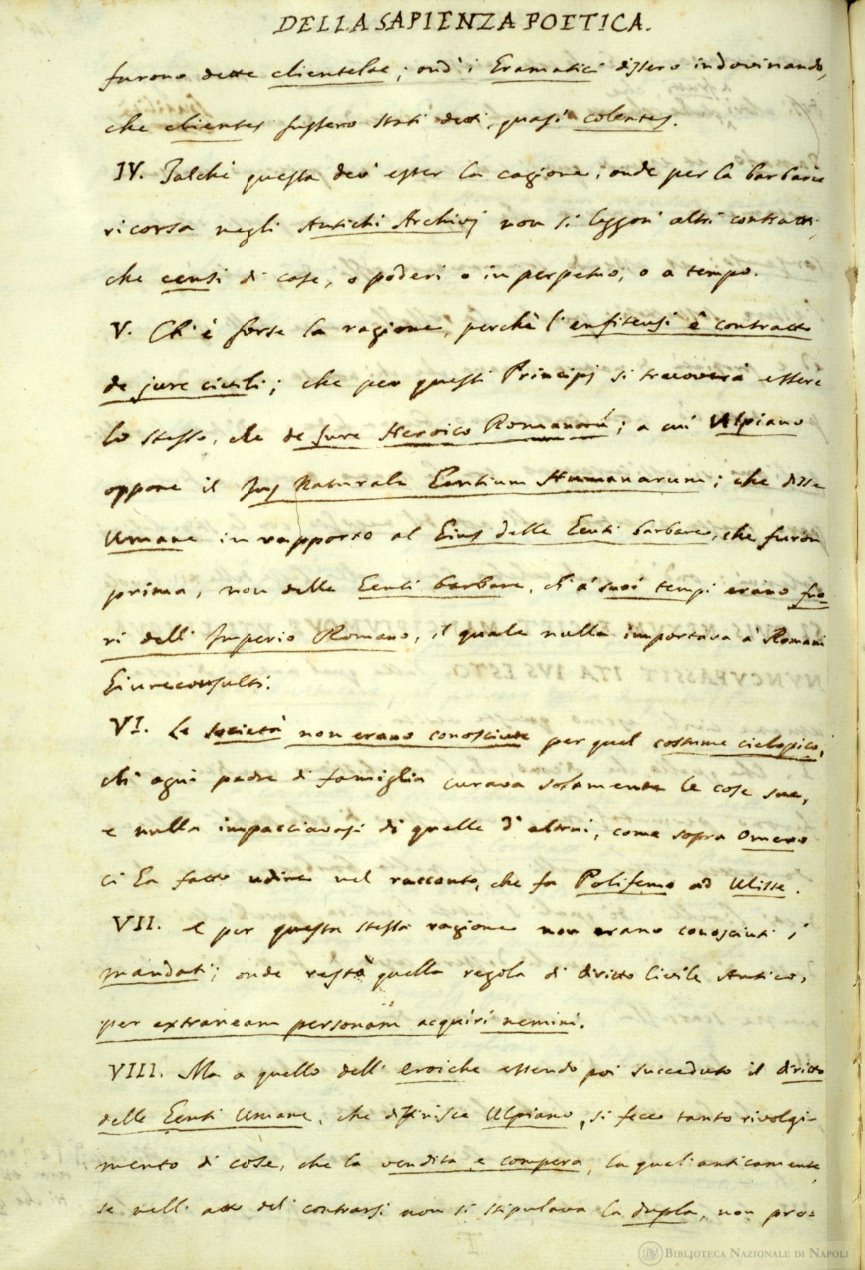 DELLA SAPIENZA POETICA.
furono dette clientelae; ond' i Gramatici dissero indovinando,
che clientes fussero stati detti, quasi colentes.
IV. Talchè questa dev' esser la cagione; onde per la barbarie
ricorsa negli Antichi Archivj non si leggon' altri contratti,
che censi di case, o poderi o in perpetuo, o a tempo.
V. Ch' è forse la ragione, perchè l' enfiteusi è contratto
de jure civili; che per questi Principj si truoverà essere
lo stesso, che de Jure Heroico Romanorũ; a cui Ulpiano
oppone il Jus Naturale Gentium Humanarum; che disse
Umane in rapporto al Gius delle Genti barbare, che furon
prima, non delle Genti barbare, ch' a' suoi tempi erano fuo-
ri dell' Imperio Romano, il quale nulla importava a' Romani
Giureconsulti.
VI. Le società non erano conosciute per quel costume ciclopico,
ch' ogni padre di famiglia curava solamente le cose sue,
e nulla impacciavasi di quelle d' altrui, come sopra Omero
ci ha fatto udire nel racconto, che fa Polifemo ad Ulisse.
VII. e per questa stessa ragione non erano conosciuti i
mandati; onde restò quella regola di diritto Civile Antico,
per extraneam personam acquiri nemini.
VIII. Ma a quello dell' eroiche essendo poi succeduto il diritto
delle Genti Umane, che diffinisce Ulpiano, si fece tanto rivolgi-
mento di cose, che la vendita e compera, la qual' anticamente,
se nell' atto del contrarsi non si stipulava la dupla, non pro-
BIBLIOTECA NAZIONALE DI NAPOLI